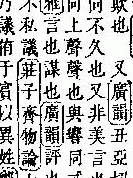 也　又廣韻丑亞
何不久也又非美言也
上聲言也與
言也謀也廣韻評也
不私議莊子齊物論
議侑于賓以異姓